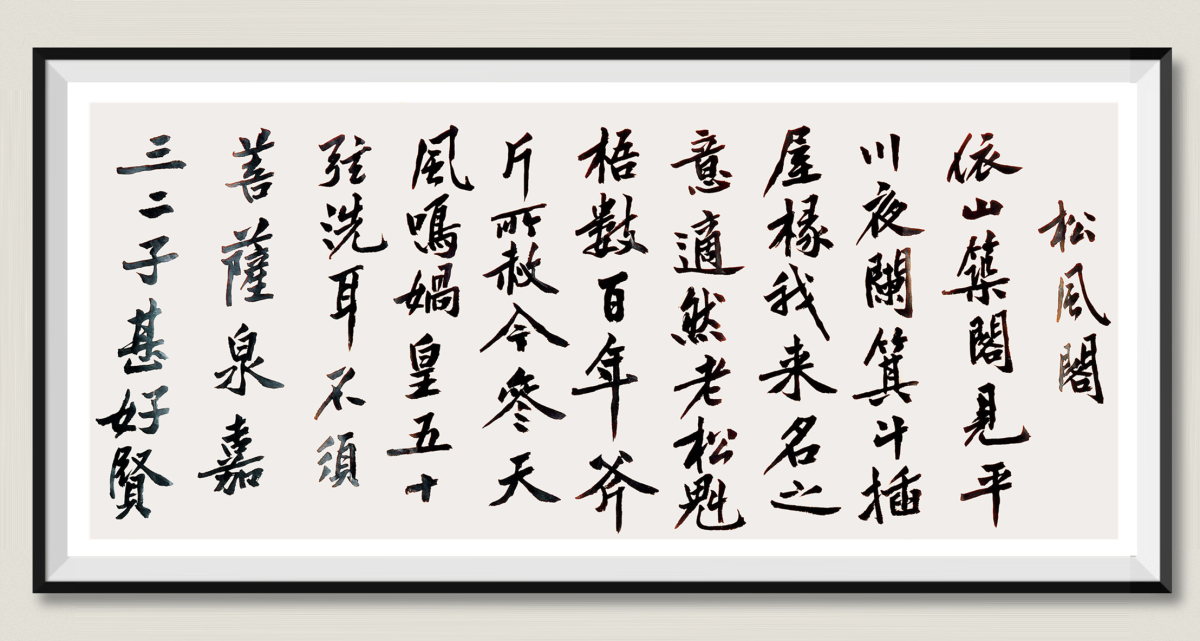 松風閣
依山築閣見平
川夜闌箕斗插
屋椽我来名之
意適然老松魁
梧數百年斧
斤所赦今參天
風鳴媧皇五十
弦洗耳不須
菩薩泉嘉
三二子甚好賢